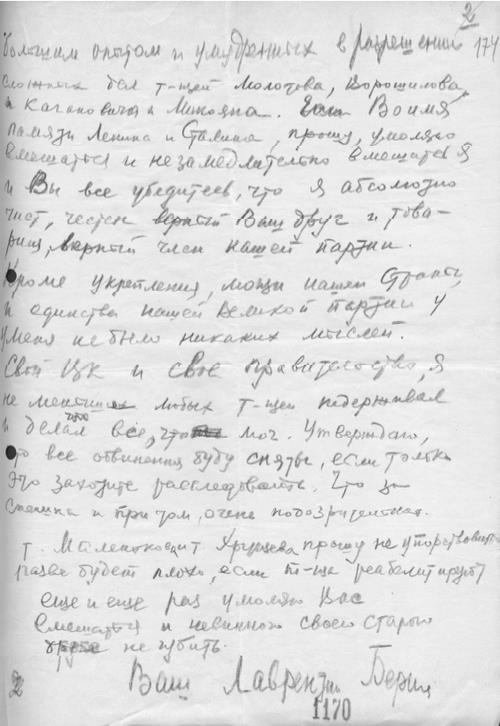 2
174
большим опытом и умудренных в разрешении
сложных дел т-щей Молотова, Ворошилова,
и Кагановича и Микояна. Во имя
памяти Ленина и Сталина, прошу, умоляю
вмешаться и незамедлительно вмешаться
и Вы все убедитесь, что я абсолютно
чист, честен верный Ваш друг и това-
рищ, верный член нашей партии.
Кроме укрепления, мощи нашей Страны,
и единства нашей Великой партии у
у меня не было никаких мыслей.
Свой ЦК и свое правительство, я
не меньше любых т-щей подерживал
и делал все, что мог. Утверждаю,
что все обвинения будут сняты, если только
это захотите расследовать. Что за
спешка и при том, очень подозрительная.
т. Маленкова и т Хрущева прошу не упорствовать
разве будет плохо, если т-ща реабелитируют
еще и еще раз умоляю Вас
вмешаться и невинного своего старого
друга не губить.
Ваш Лаврентий Берия
1170
2